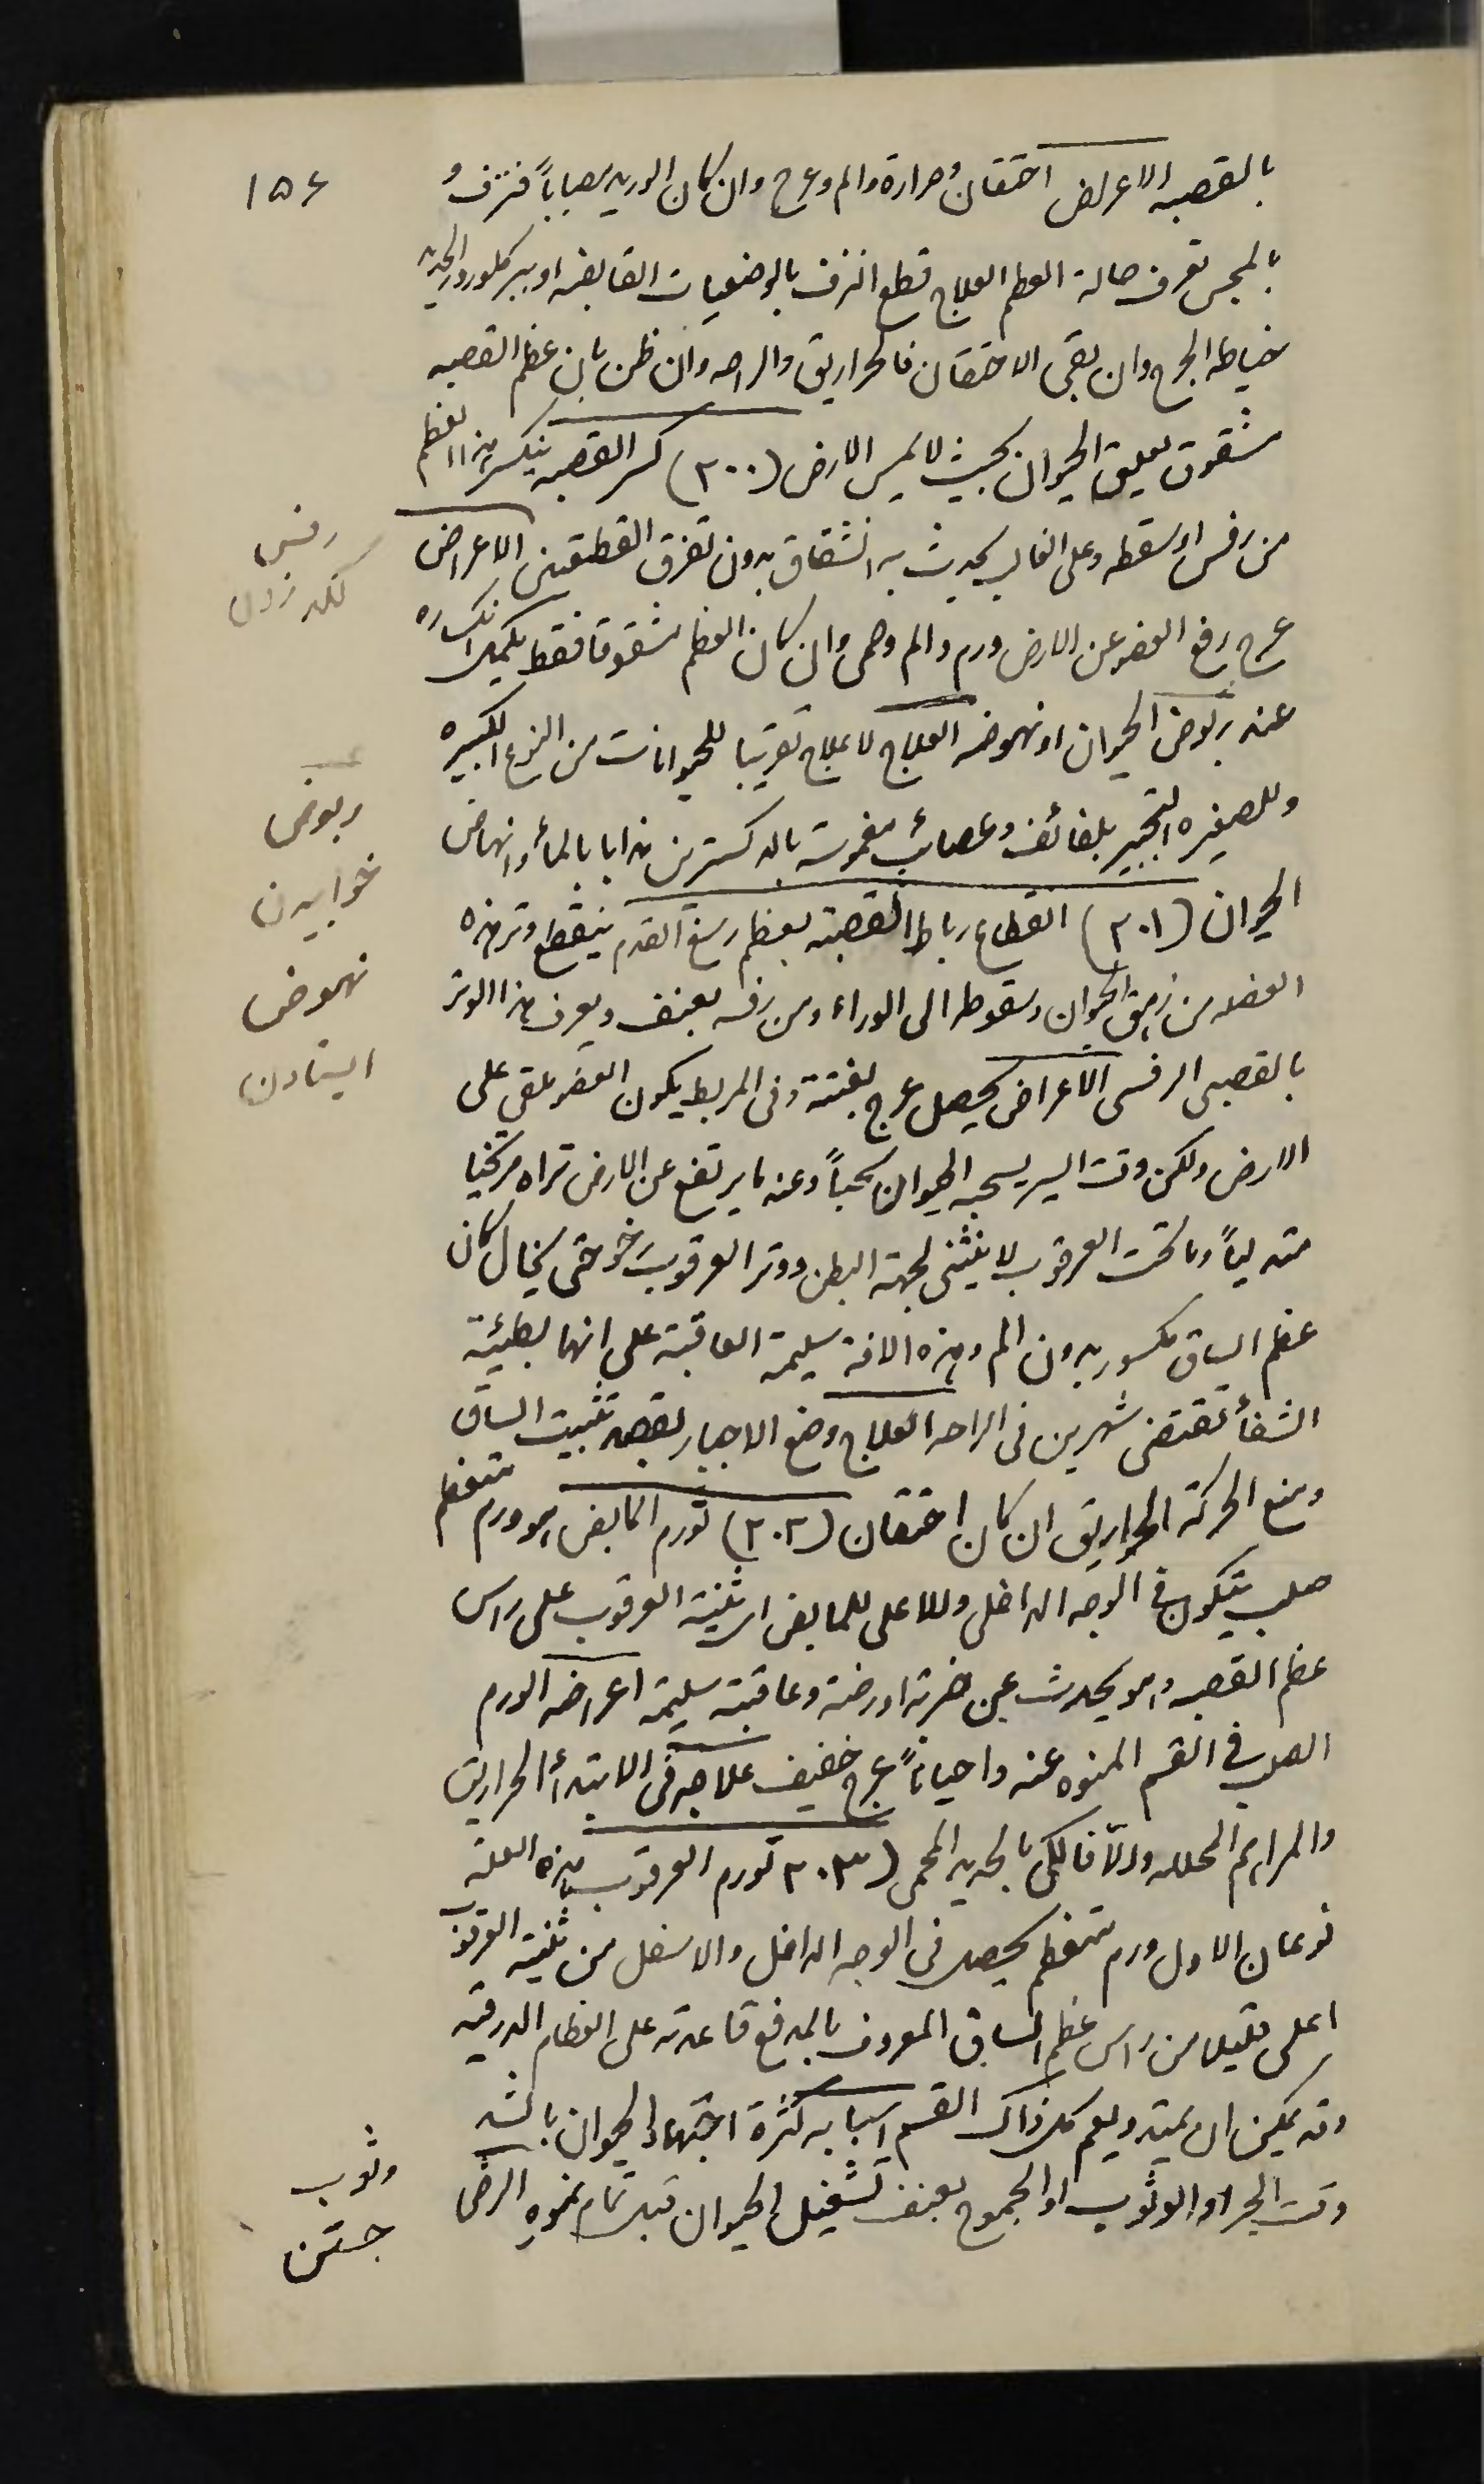 ١٥٤
بالقصبه الاعراض احتقان وحرارة والم وعرج وان كان الوريد مصاباً فنزف و
بالمجس تعرف حالة العظم العلاج قطع النزف بالوضعيات القابضه او ببركلورور الحديد
خياطه الجرح وان بقى الاحتقان فالحراريق والراحه وان ظن بان عظم القصبه
مشقوق تعليق الحيوان بحيث لا يمس الارض (٢٠٠) كسر القصبه ينكسر هذا العظم
من رفس او سقطه وعلى الغالب يحدث به انشقاق بدون تفرق القطعتين الاعراض
عرج رفع العضو عن الارض ورم والم وحمى وان كان العظم مشقوقا فقط يكمل انكساره
عند ربوض الحيوان او نهوضه العلاج لا علاج تقريبا للحيوانات من النوع الكبيره
وللصغيره التجبير بلفائف وعصائب مغموسة بالدكسترين مذابا بالمأ وانهاض
الحيوان (٢٠١) انقطاع رباط القصبة بعظم رسغ القدم ينقطع وتر هذه
العضله من زهق الحيوان وسقوطه الى الوراء ومن رفسه بعنف ويعرف هذا الوتر
بالقصبى الرفسى الاعراض يحصل عرج بغتة وفى المربط يكون العضو ملقى على
الارض ولكن وقت السير يسحبه الحيوان سحباً وعند ما يرتفع عن الارض تراه مرتخيا
متدلياً وما تحت العرقوب لا ينثنى لجهة البطن ووتر العرقوب رخو حتى يخال كان
عظم الساق مكسور بدون الم وهذه الافة سليمة العاقبة على انها بطيئة
الشفأ تقتضى شهرين فى الراحه العلاج وضع الاجبار بقصد تثبيت الساق
ومنع الحركة الحراريق ان كان احتقان (٢٠٢) تورم المابض هو ورم متعظم
صلب يتكون فى الوجه الداخلى وللاعلى للمابض اى ثنية العرقوب على راس
عظم القصبه وهو يحدث عن ضربة او رضة وعاقبته سليمة اعراضه الورم
الصلب فى القسم المنوه عنه واحياناً عرج خفيف علاجه فى الابتدأ الحراريق
والمراهم المحلله والّا فالكى بالحديد المحمى (٢٠٣ تورم العرقوب هذه العلة
نوعان الاول ورم متعظم يحصل فى الوجه الداخل والاسفل من ثنية العرقوب
اعلى قليلا من راس عظم الساق المعروف بالمدفع قاعدته على العظام الدرقيه
وقد يمكن ان يمتد ويعم كل ذاك القسم اسبابه كثرة اجتهاد الحيوان بالشد
وقت الجر او الوثوب او الجموح بعنف تشغيل الحيوان قبل تمام نموهِ الرض
رفس
لكد زدن
ربوض
خوابيدن
نهوض
ايستادن
وثوب
جستن